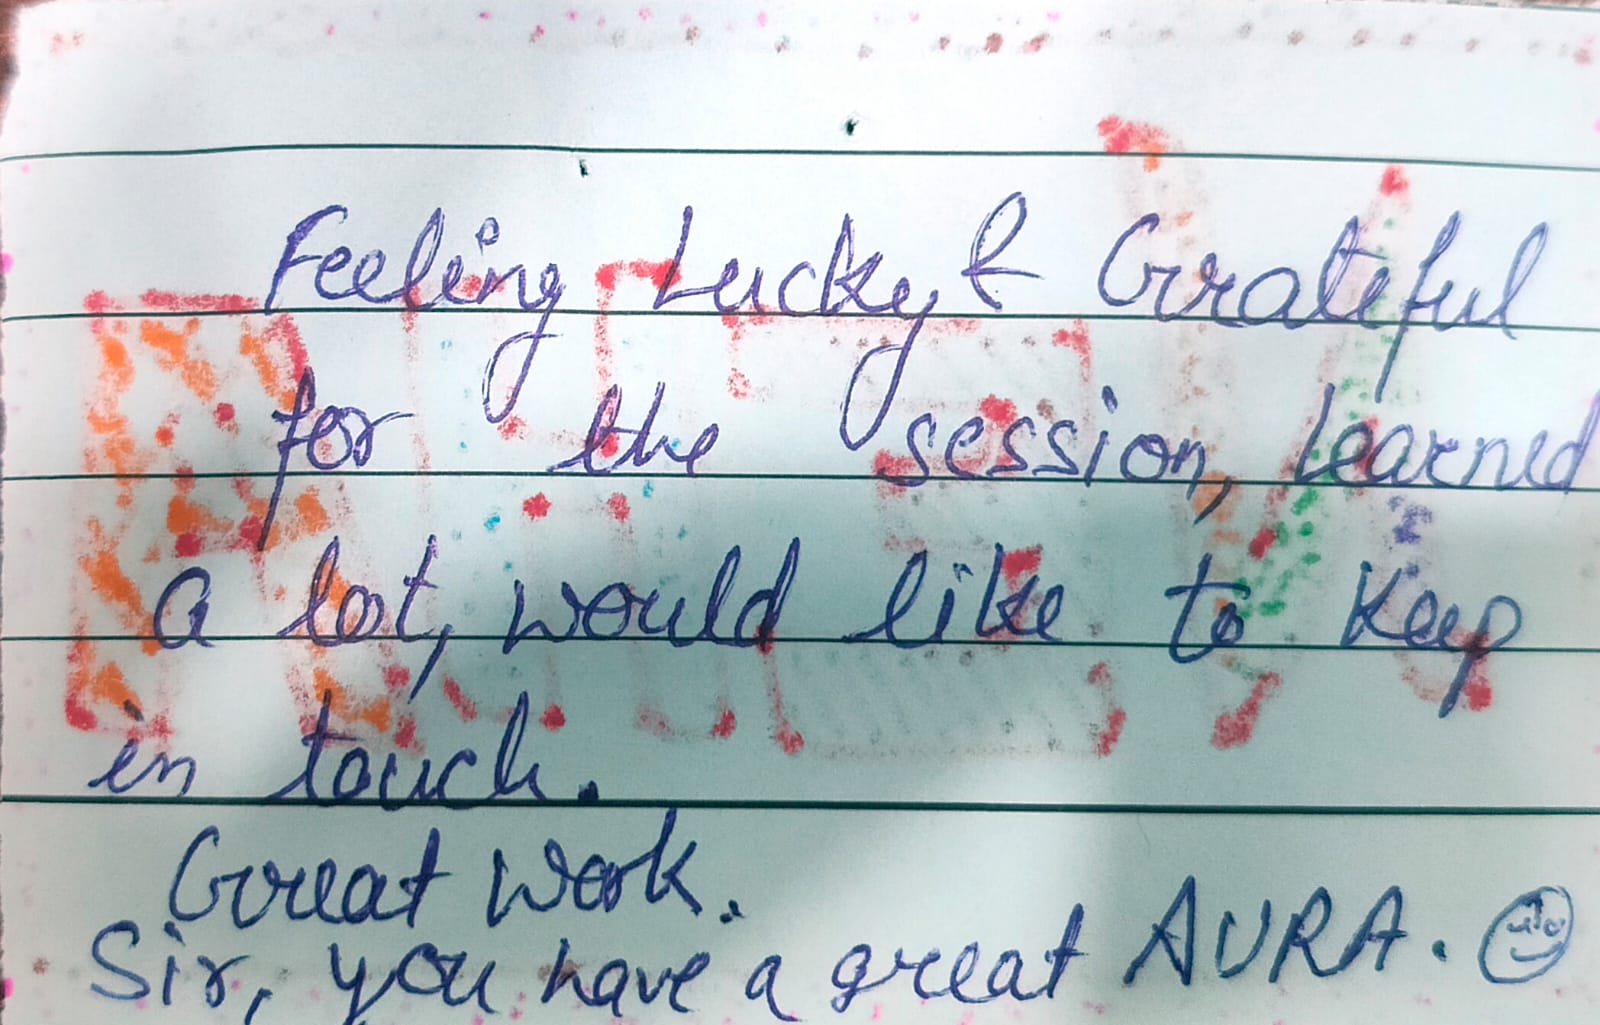 Feeling Lucky & Grateful
for the session, learned
a lot, would like to keep
in touch.
Great Work.
Sir, you have a great AURA.